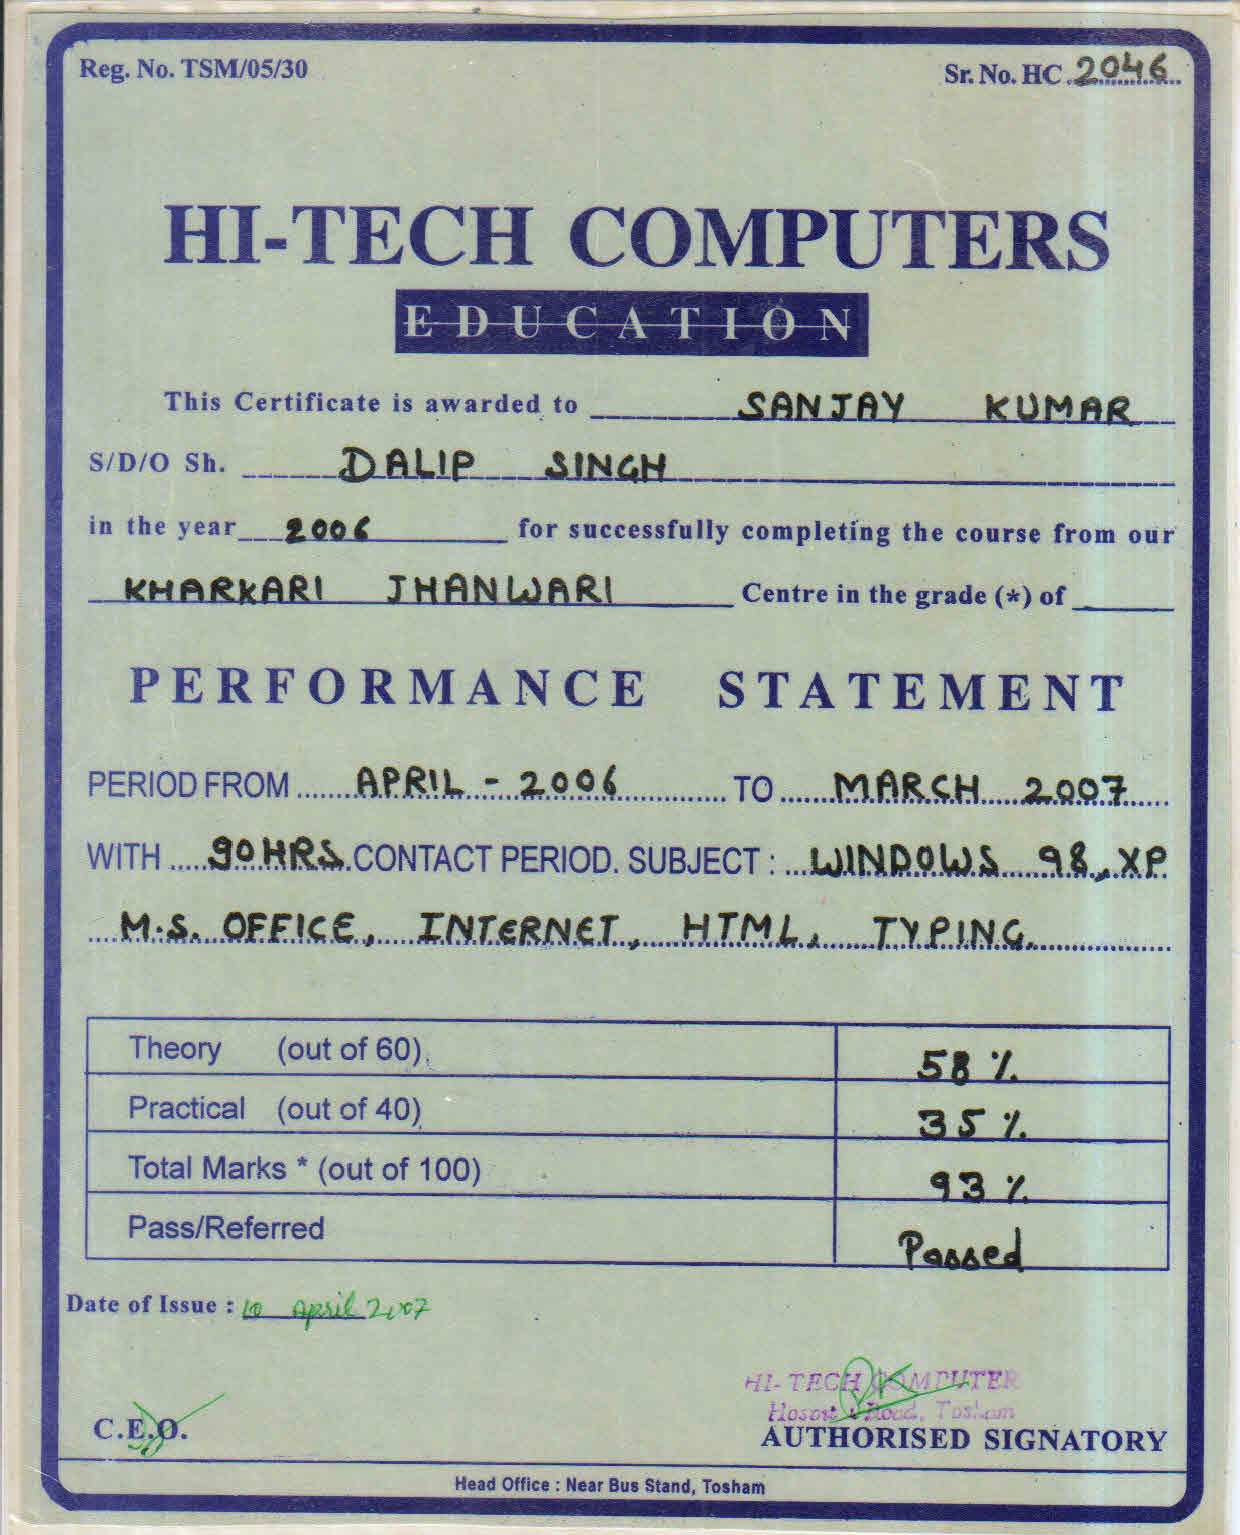 Reg. No. TSM/05/30 Sr. No. HC 2046
HI-TECH COMPUTERS
EDUCATION
This Certificate is awarded to SANJAY KUMAR
S/D/O Sh. DALIP SINGH
in the year 2006 for successfully completing the course from our
KHARKARI JHANWARI Centre in the grade (*) of
PERFORMANCE STATEMENT
PERIOD FROM APRIL - 2006 TO MARCH 2007
WITH 90 HRS. CONTACT PERIOD. SUBJECT : WINDOWS 98, XP
M.S. OFFICE, INTERNET, HTML, TYPING.
Theory (out of 60) 58 %
Practical (out of 40) 35 %
Total Marks * (out of 100) 93 %
Pass/Referred Passed
Date of Issue : 10 April 2007
HI-TECH COMPUTER
Road, Tosham
C.E.O. AUTHORISED SIGNATORY
Head Office : Near Bus Stand, Tosham